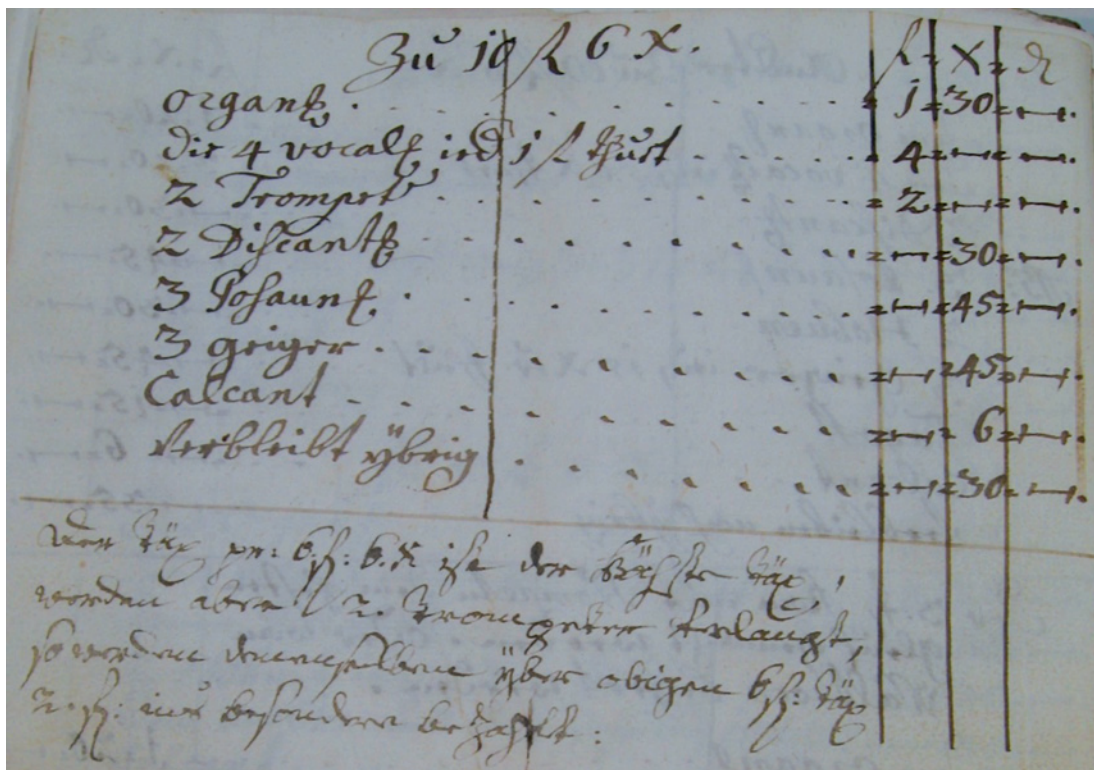 Zu 10 f 6 X. f X ₰
Organist 1 30 —
die 4 vocalist, ied 1 f thuet 4 — —
2 Trompet 2 — —
2 Discantist — 30 —
3 Posaunist — 45 —
3 geiger — 45 —
Calcant — 6 —
Verbleibt ybrig — 30 —
der Tax pr: 6 f: 6 X ist der höchste Tax,
werden aber 2 Trompeter verlangt,
so werden demenselben yber obigen 6 f: Tax
2 f: besonder bezahlt: